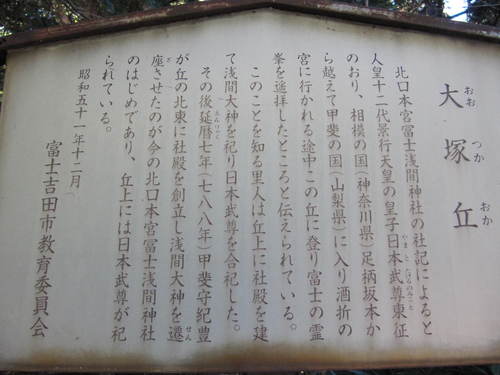 大塚丘
おお つか おか
北口本宮冨士浅間神社の社記によると
人皇十二代景行天皇の皇子日本武尊東征
やまとたけるのみこと
のおり、相模の国(神奈川県)足柄坂本か
ら越えて甲斐の国(山梨県)に入り酒折の
宮に行かれる途中この丘に登り富士の霊
峯を遥拝したところと伝えられている。
このことを知る里人は丘上に社殿を建
て浅間大神を祀り日本武尊を合祀した。
その後延暦七年(七八八年)甲斐守紀豊
えんりゃく
が丘の北東に社殿を創立し浅間大神を遷
せん
座させたのが今の北口本宮冨士浅間神社
ざ
のはじめであり、丘上には日本武尊が祀
られている。
昭和五十一年十二月
富士吉田市教育委員会